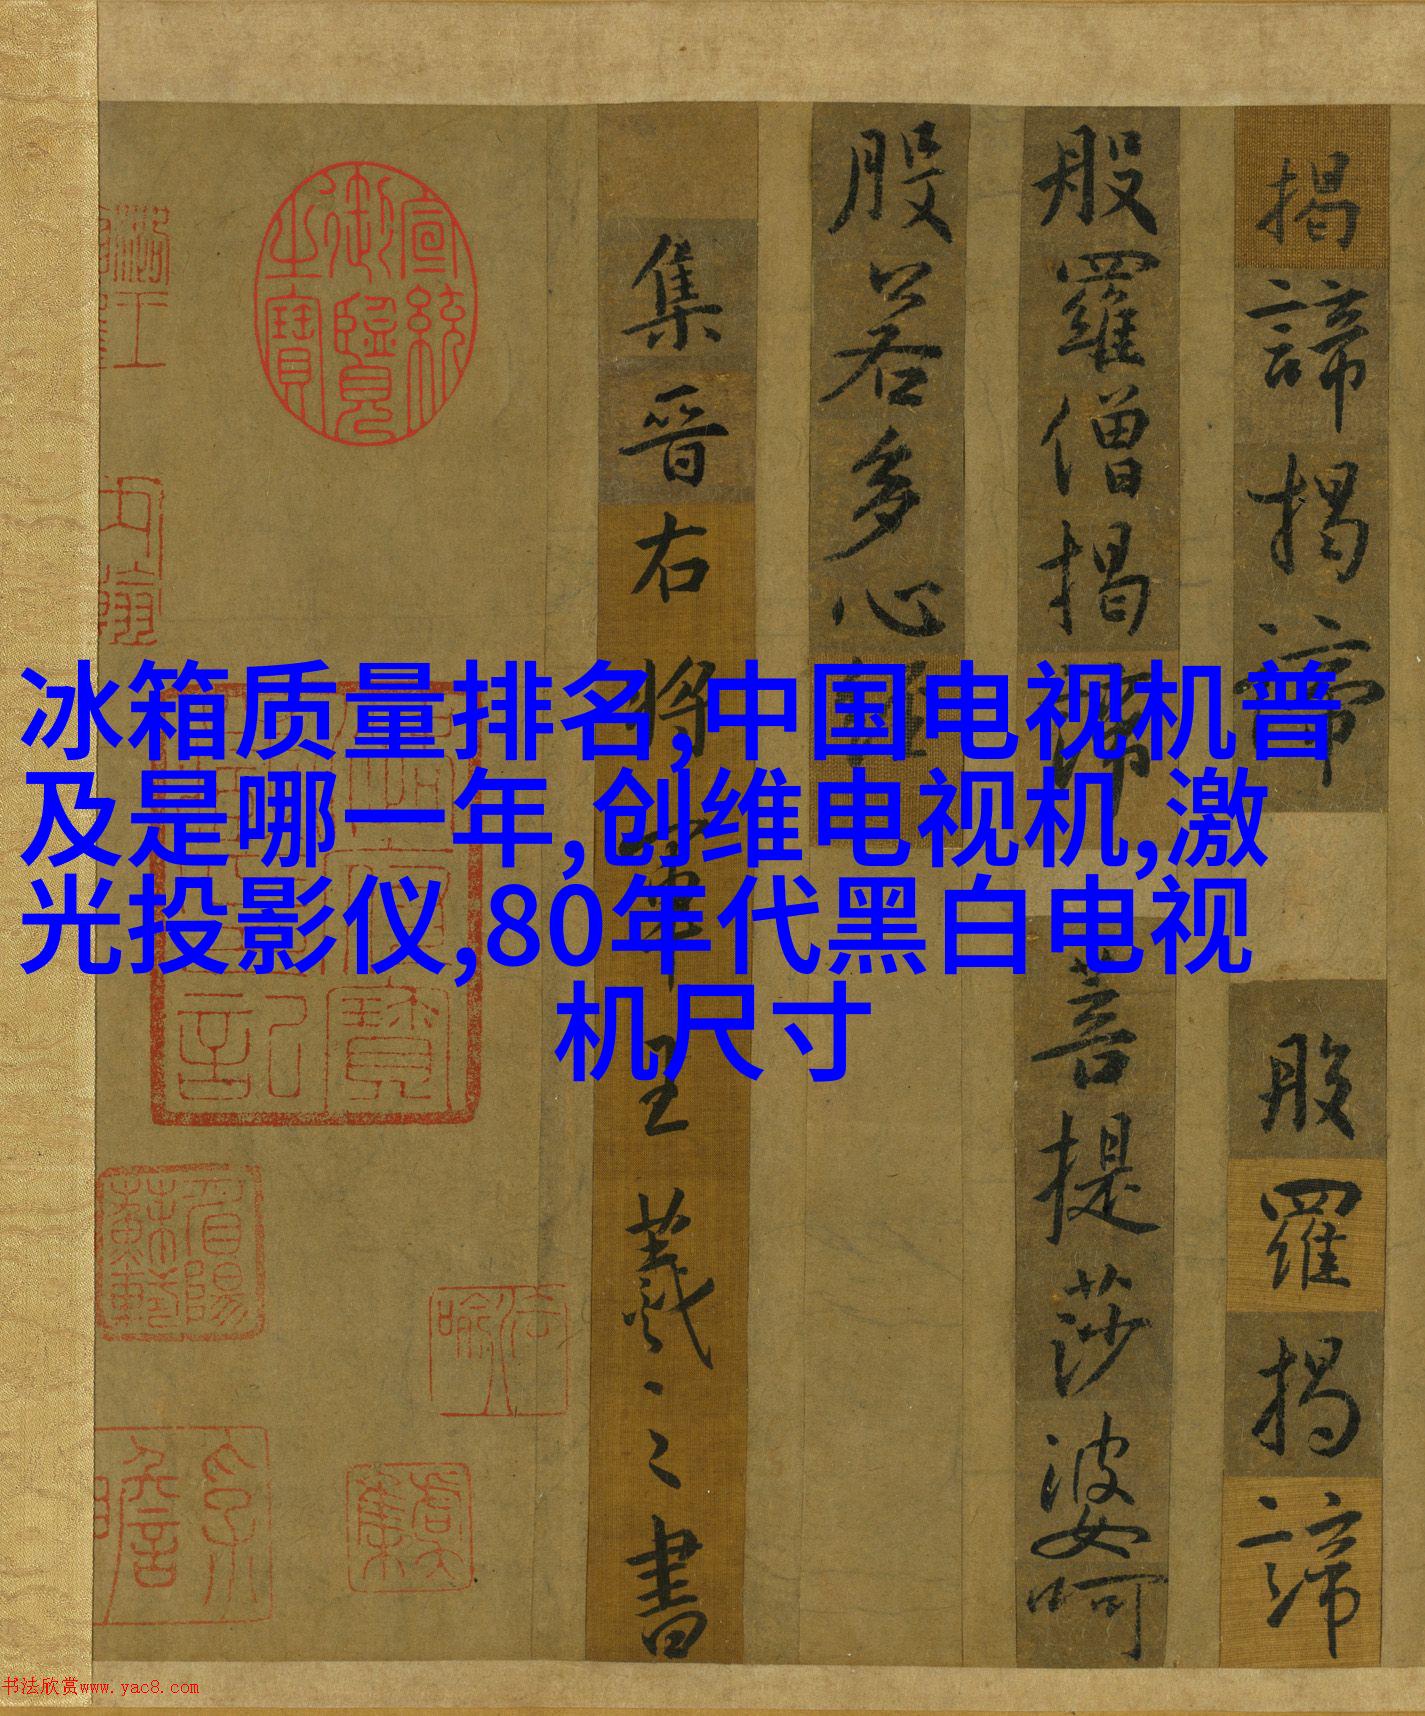 揭諦揭諦 般羅揭諦
般羅僧揭諦 菩提莎婆呵
般若多心經
集晉右將軍王羲之書
宣統御覽之寶
冰箱质量排名,中国电视机普
及是哪一年,创维电视机,激
光投影仪,80年代黑白电视
机尺寸
书法欣赏www.yac8.com